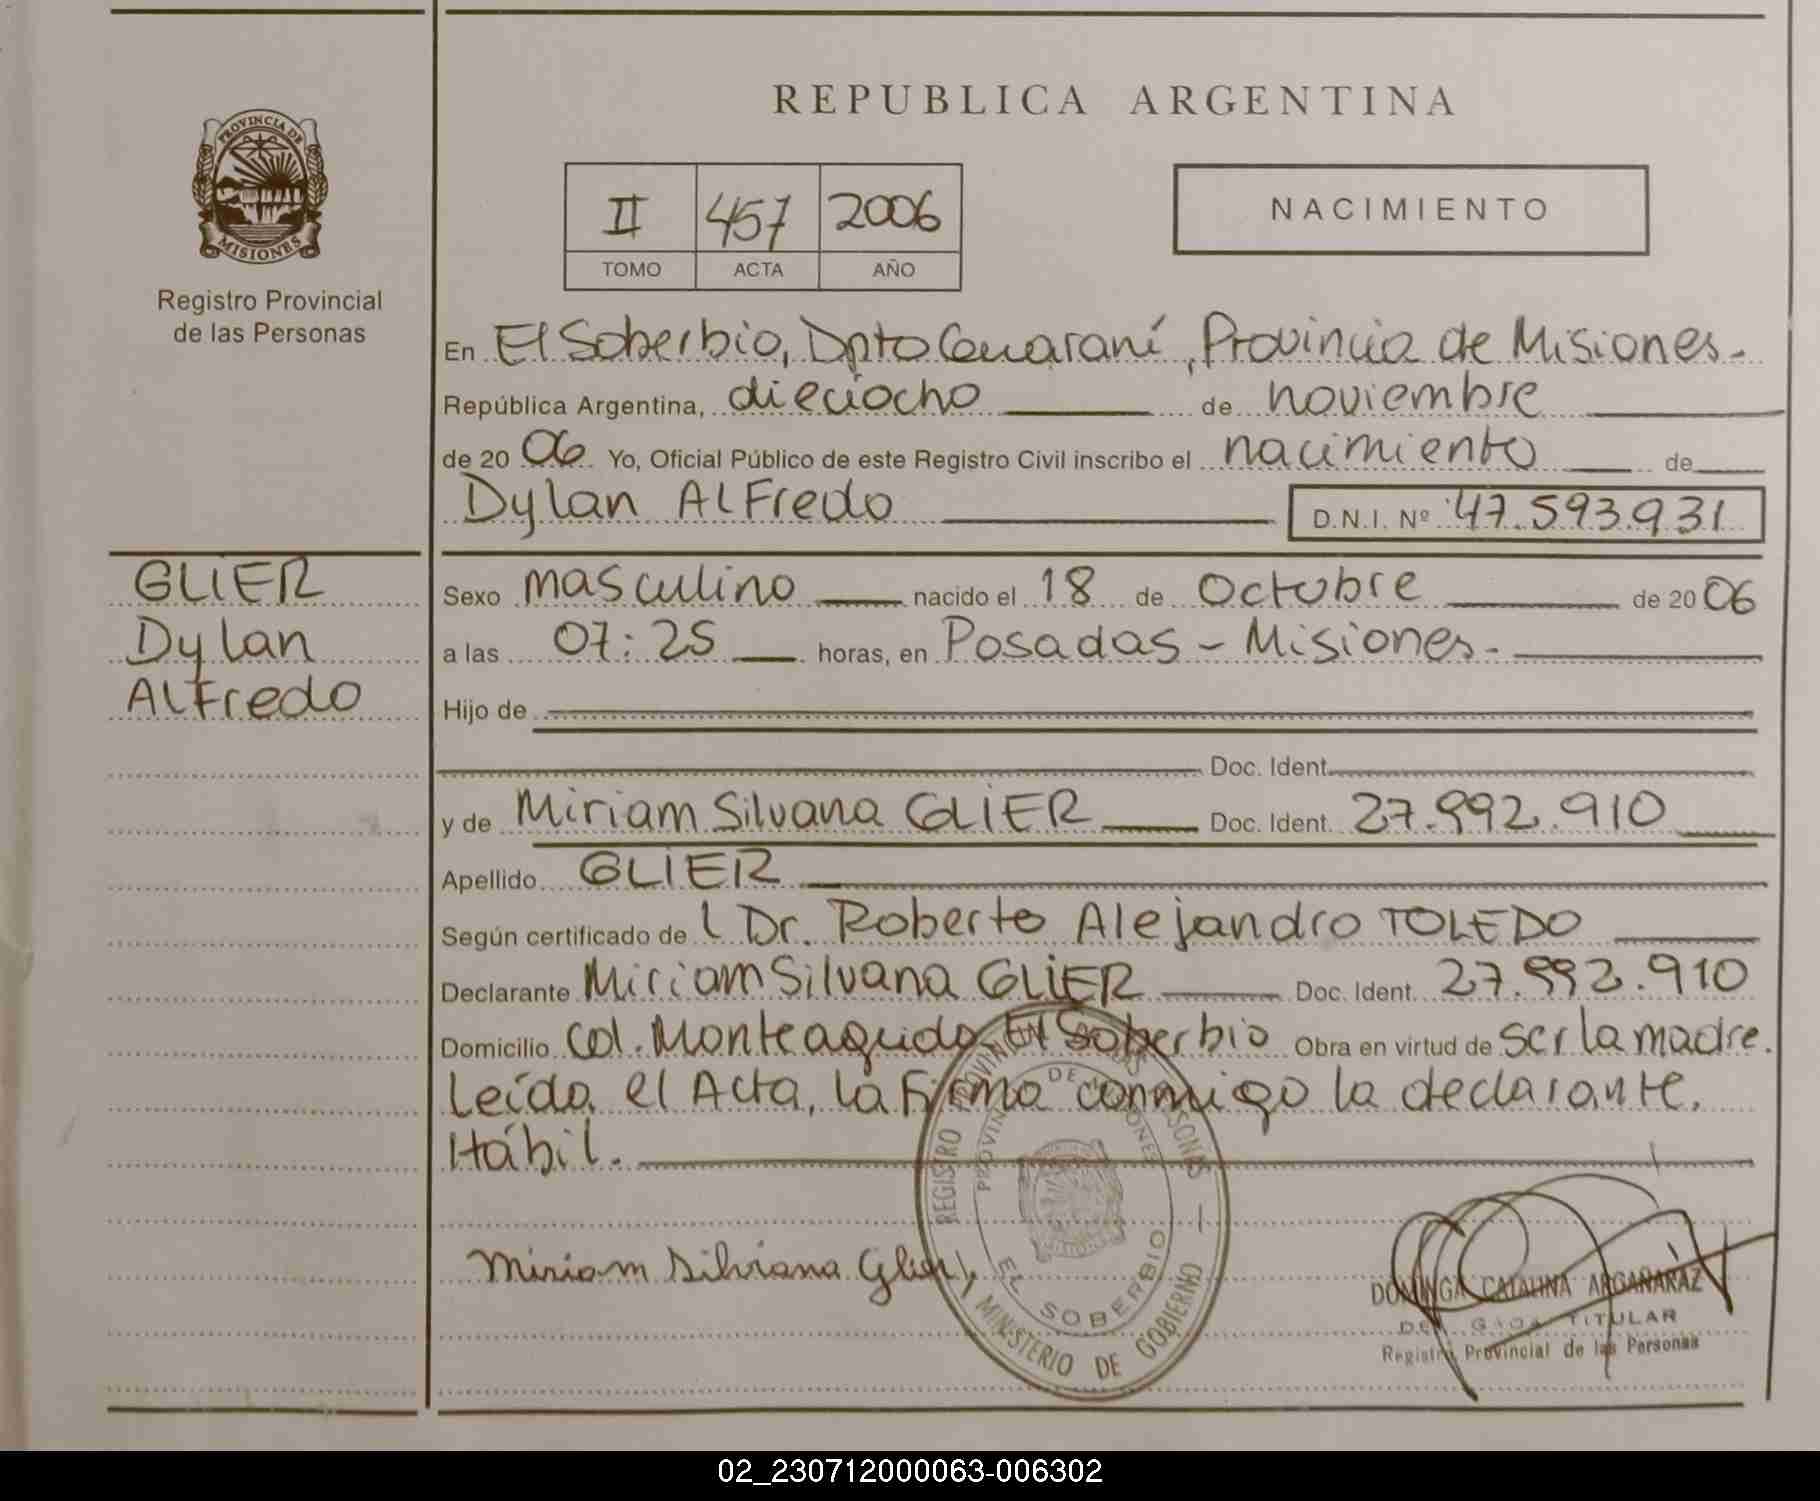 REPUBLICA ARGENTINA
PROVINCIA DE
MISIONES
Registro Provincial
de las Personas
II 457 2006
TOMO ACTA AÑO
NACIMIENTO
En El Soberbio, Dpto Guaraní, Provincia de Misiones.
República Argentina, dieciocho de noviembre
de 2006 Yo, Oficial Público de este Registro Civil inscribo el nacimiento de
Dylan Alfredo D.N.I. Nº 47.593.931
GLIER
Dylan
Alfredo
Sexo masculino nacido el 18 de Octubre de 2006
a las 07:25 horas, en Posadas - Misiones.
Hijo de
Doc. Ident.
y de Miriam Silvana GLIER Doc. Ident. 27.992.910
Apellido GLIER
Según certificado de l Dr. Roberto Alejandro TOLEDO
Declarante Miriam Silvana GLIER Doc. Ident. 27.992.910
Domicilio Col. Monteagudo, El Soberbio Obra en virtud de ser la madre.
Leída el Acta, la firma conmigo la declarante.
Hábil.
Miriam Silviana Glier
REGISTRO PROVINCIAL DE LAS PERSONAS
PROVINCIA DE MISIONES
EL SOBERBIO
MINISTERIO DE GOBIERNO
DOMINGA CATALINA ARGAÑARAZ
TITULAR
Registro Provincial de las Personas
02_230712000063-006302